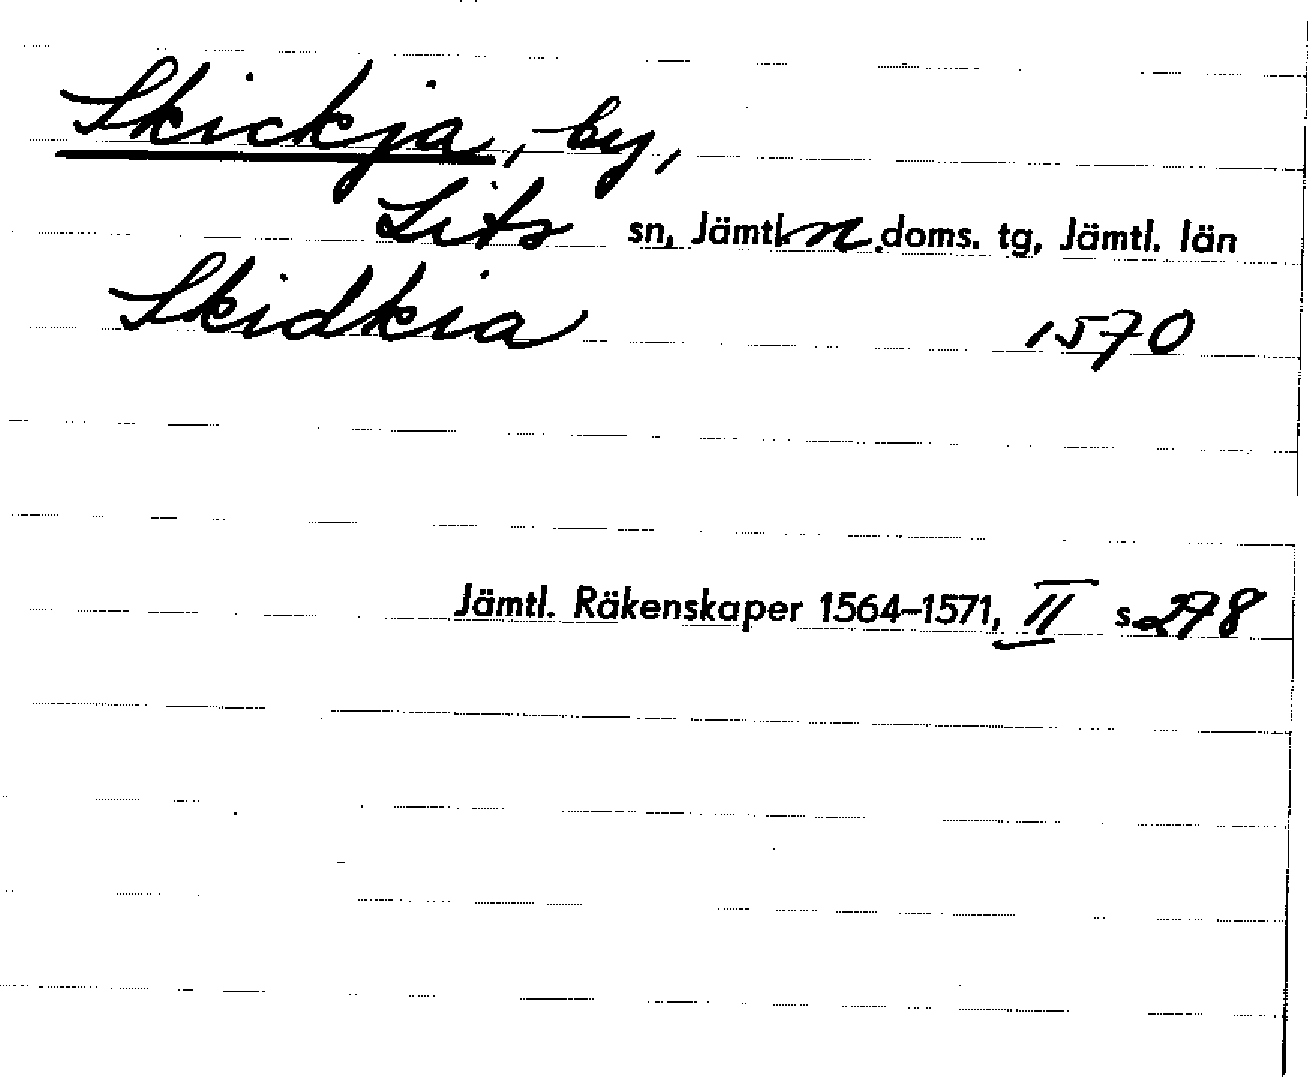 Skickja, by,
Lits sn, Jämtl. n. doms. tg, Jämtl. län
Skidkia 1570
Jämtl. Räkenskaper 1564–1571, II s. 278